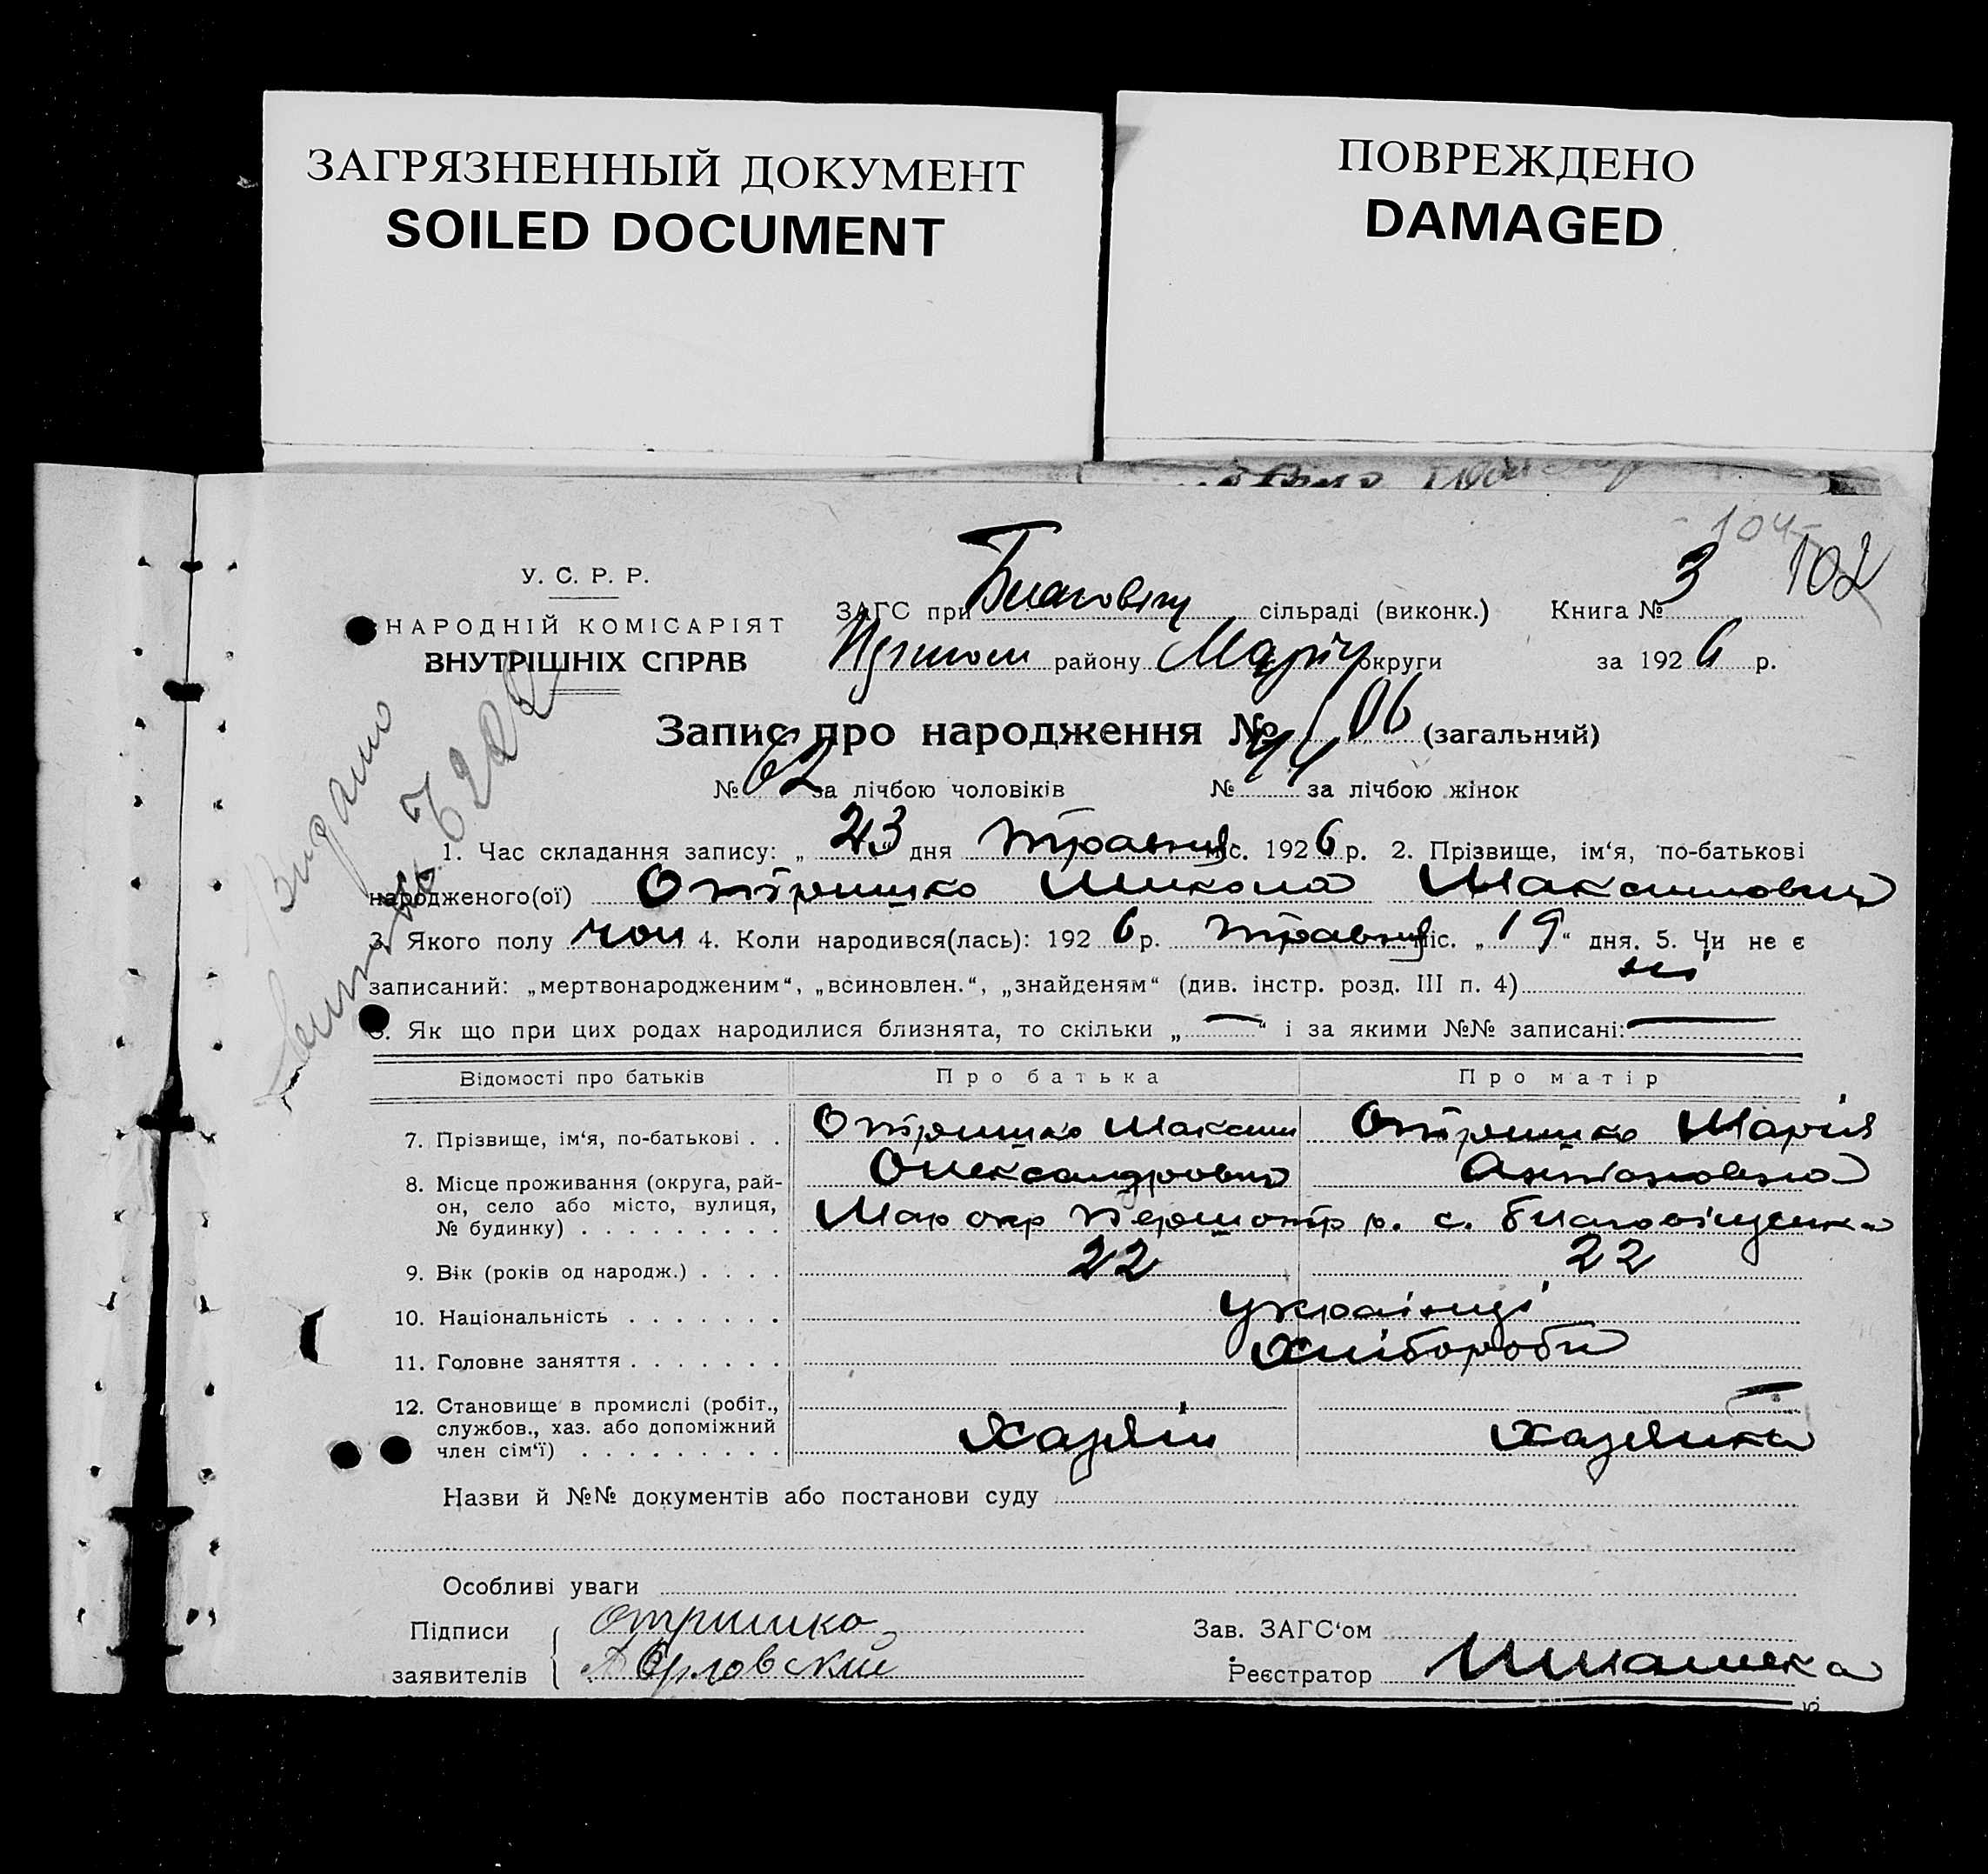 ЗАГРЯЗНЕННЫЙ ДОКУМЕНТ
SOILED DOCUMENT
ПОВРЕЖДЕНО
DAMAGED
104
102
У. С. Р. Р.
НАРОДНІЙ КОМІСАРІЯТ
ВНУТРІШНІХ СПРАВ
ЗАГС при Благовіщ сільраді (виконк.) Книга № 3
району Маріу округи за 1926 р.
Запис про народження № 106 (загальний)
№ 62 за лічбою чоловіків № 44 за лічбою жінок
Видано
1. Час складання запису: „23" дня травня міс. 1926 р. 2. Прізвище, ім'я, по-батькові
народженого(ої) Отришко Микола Максимович
3. Якого полу чол 4. Коли народився(лась): 1926 р. травня міс. „19" дня. 5. Чи не є
записаний: „мертвонародженим", „всиновлен.", „знайденям" (див. інстр. розд. III п. 4) ні
6. Як що при цих родах народилися близнята, то скільки „—" і за якими №№ записані: —
Відомості про батьків Про батька Про матір
7. Прізвище, ім'я, по-батькові . . Отришко Максим Отришко Марія
Олександрович Антоновна
8. Місце проживання (округа, рай-
он, село або місто, вулиця,
№ будинку) . . . . . . . . . Мар окр р. с. Благовіщенка
9. Вік (років од народж.) . . . . 22 22
10. Національність . . . . . . . українці
11. Головне заняття . . . . . . . Хлібороби
12. Становище в промислі (робіт.,
службов., хаз. або допоміжний
член сім'ї) . . . . . . . . . Хазяїн Хазяйка
Назви й №№ документів або постанови суду
Особливі уваги
Підписи Отришко
заявителів Орловский
Зав. ЗАГС'ом
Реєстратор